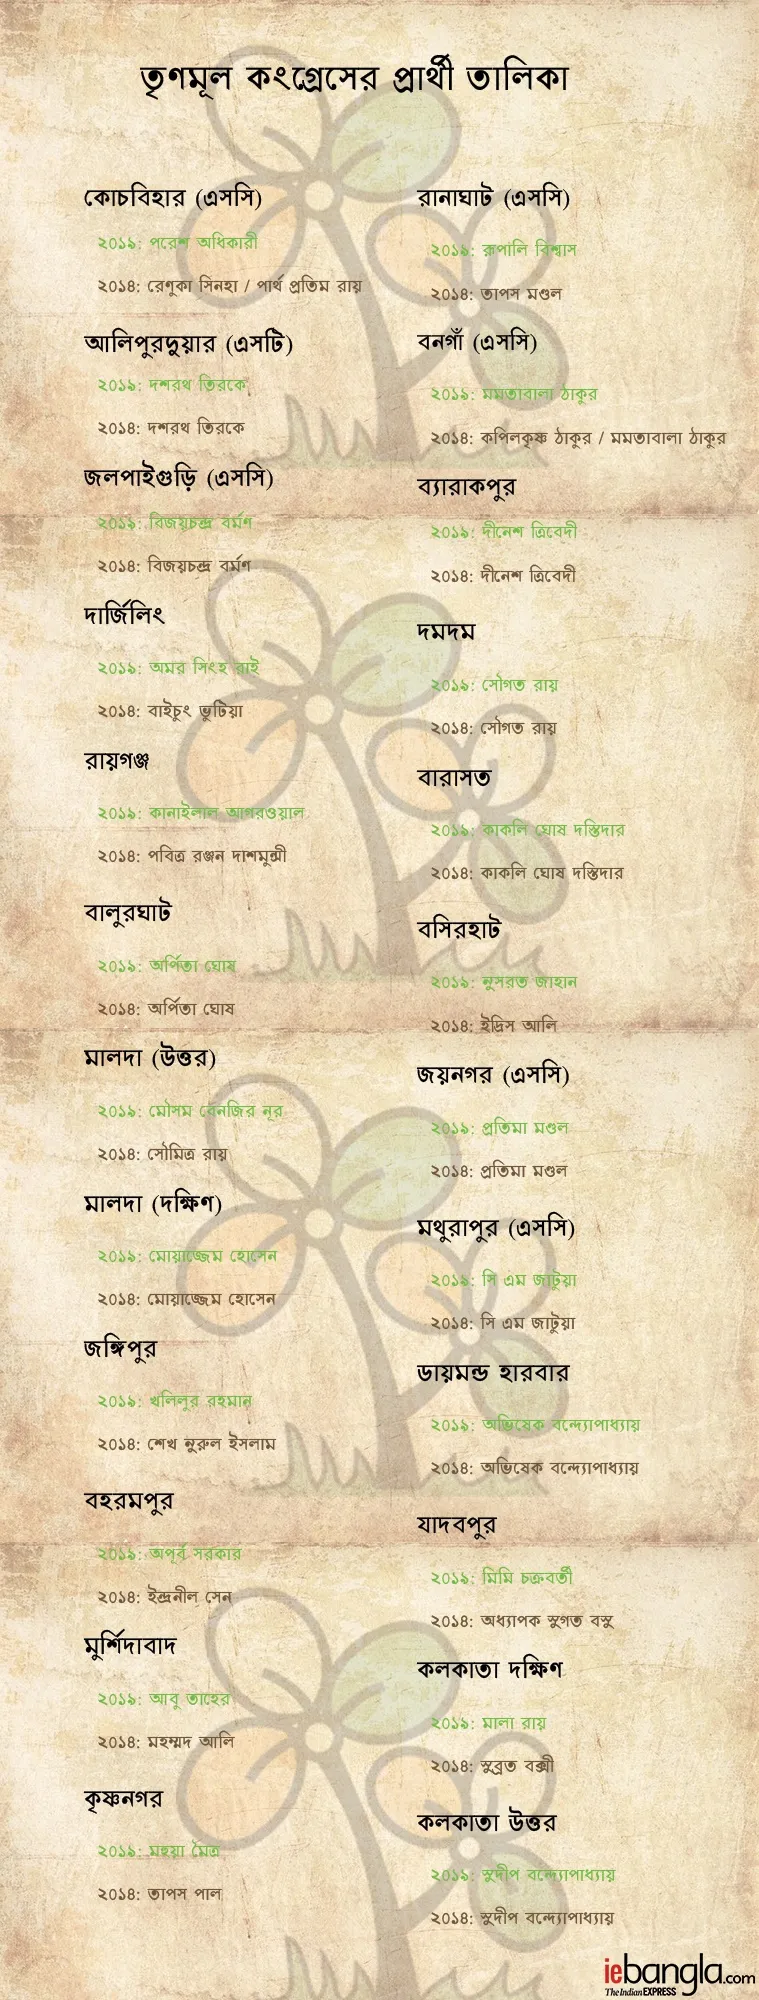 তৃণমূল কংগ্রেসের প্রার্থী তালিকা
কোচবিহার (এসসি)
২০১৯: পরেশ অধিকারী
২০১৪: রেণুকা সিনহা / পার্থ প্রতিম রায়
আলিপুরদুয়ার (এসটি)
২০১৯: দশরথ তিরকে
২০১৪: দশরথ তিরকে
জলপাইগুড়ি (এসসি)
২০১৯: বিজয়চন্দ্র বর্মণ
২০১৪: বিজয়চন্দ্র বর্মণ
দার্জিলিং
২০১৯: অমর সিংহ রাই
২০১৪: বাইচুং ভুটিয়া
রায়গঞ্জ
২০১৯: কানাইলাল আগরওয়াল
২০১৪: পবিত্র রঞ্জন দাশমুন্সী
বালুরঘাট
২০১৯: অর্পিতা ঘোষ
২০১৪: অর্পিতা ঘোষ
মালদা (উত্তর)
২০১৯: মৌসম বেনজির নূর
২০১৪: সৌমিত্র রায়
মালদা (দক্ষিণ)
২০১৯: মোয়াজ্জেম হোসেন
২০১৪: মোয়াজ্জেম হোসেন
জঙ্গিপুর
২০১৯: খলিলুর রহমান
২০১৪: শেখ নুরুল ইসলাম
বহরমপুর
২০১৯: অপূর্ব সরকার
২০১৪: ইন্দ্রনীল সেন
মুর্শিদাবাদ
২০১৯: আবু তাহের
২০১৪: মহম্মদ আলি
কৃষ্ণনগর
২০১৯: মহুয়া মৈত্র
২০১৪: তাপস পাল
রানাঘাট (এসসি)
২০১৯: রূপালি বিশ্বাস
২০১৪: তাপস মণ্ডল
বনগাঁ (এসসি)
২০১৯: মমতাবালা ঠাকুর
২০১৪: কপিলকৃষ্ণ ঠাকুর / মমতাবালা ঠাকুর
ব্যারাকপুর
২০১৯: দীনেশ ত্রিবেদী
২০১৪: দীনেশ ত্রিবেদী
দমদম
২০১৯: সৌগত রায়
২০১৪: সৌগত রায়
বারাসত
২০১৯: কাকলি ঘোষ দস্তিদার
২০১৪: কাকলি ঘোষ দস্তিদার
বসিরহাট
২০১৯: নুসরত জাহান
২০১৪: ইদ্রিস আলি
জয়নগর (এসসি)
২০১৯: প্রতিমা মণ্ডল
২০১৪: প্রতিমা মণ্ডল
মথুরাপুর (এসসি)
২০১৯: সি এম জাটুয়া
২০১৪: সি এম জাটুয়া
ডায়মন্ড হারবার
২০১৯: অভিষেক বন্দ্যোপাধ্যায়
২০১৪: অভিষেক বন্দ্যোপাধ্যায়
যাদবপুর
২০১৯: মিমি চক্রবর্তী
২০১৪: অধ্যাপক সুগত বসু
কলকাতা দক্ষিণ
২০১৯: মালা রায়
২০১৪: সুব্রত বক্সী
কলকাতা উত্তর
২০১৯: সুদীপ বন্দ্যোপাধ্যায়
২০১৪: সুদীপ বন্দ্যোপাধ্যায়
iebangla.com
The Indian EXPRESS